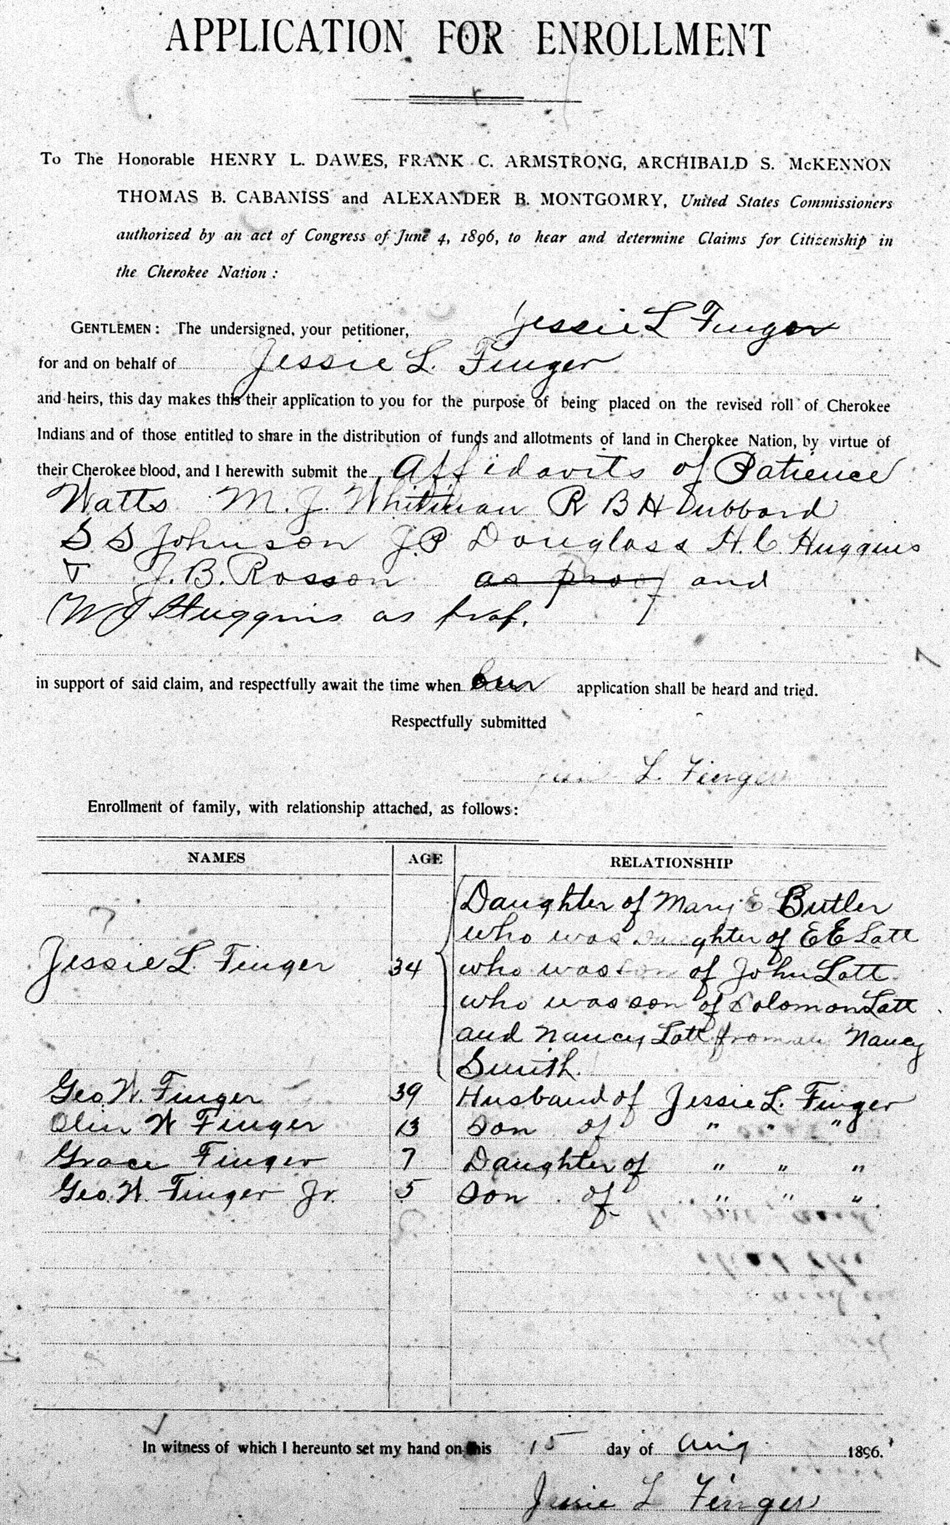 APPLICATION FOR ENROLLMENT
To The Honorable HENRY L. DAWES, FRANK C. ARMSTRONG, ARCHIBALD S. McKENNON
THOMAS B. CABANISS and ALEXANDER B. MONTGOMRY, United States Commissioners
authorized by an act of Congress of June 4, 1896, to hear and determine Claims for Citizenship in
the Cherokee Nation:
GENTLEMEN: The undersigned, your petitioner, Jessie L Finger
for and on behalf of Jessie L. Finger
and heirs, this day makes this their application to you for the purpose of being placed on the revised roll of Cherokee
Indians and of those entitled to share in the distribution of funds and allotments of land in Cherokee Nation, by virtue of
their Cherokee blood, and I herewith submit the Affidavits of Patience
Watts M. J. Whitman R B Hubbard
S S Johnson J. P Douglass H. C. Huggins
J. B. Rosson as proof and
W J Huggins as
in support of said claim, and respectfully await the time when our application shall be heard and tried.
Respectfully submitted
L. Finger
Enrollment of family, with relationship attached, as follows:
NAMES AGE RELATIONSHIP
Daughter of Mary E Butler
who was daughter of E E Latt
Jessie L. Finger 34 who was son of John Latt
who was son of Solomon Latt
and Nancy Latt Nancy
Smith.
Geo. W. Finger 39 Husband of Jessie L. Finger
Olin W Finger 13 Son of " " "
Grace Finger 7 Daughter of " " "
Geo. W. Finger Jr. 5 Son of " " "
In witness of which I hereunto set my hand on this 15 day of Aug 1896.
Jessie L Finger